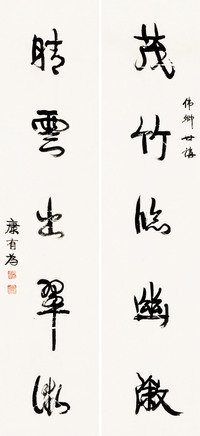 茂竹臨幽澈
偉卿世講
晴雲出翠微
康有為